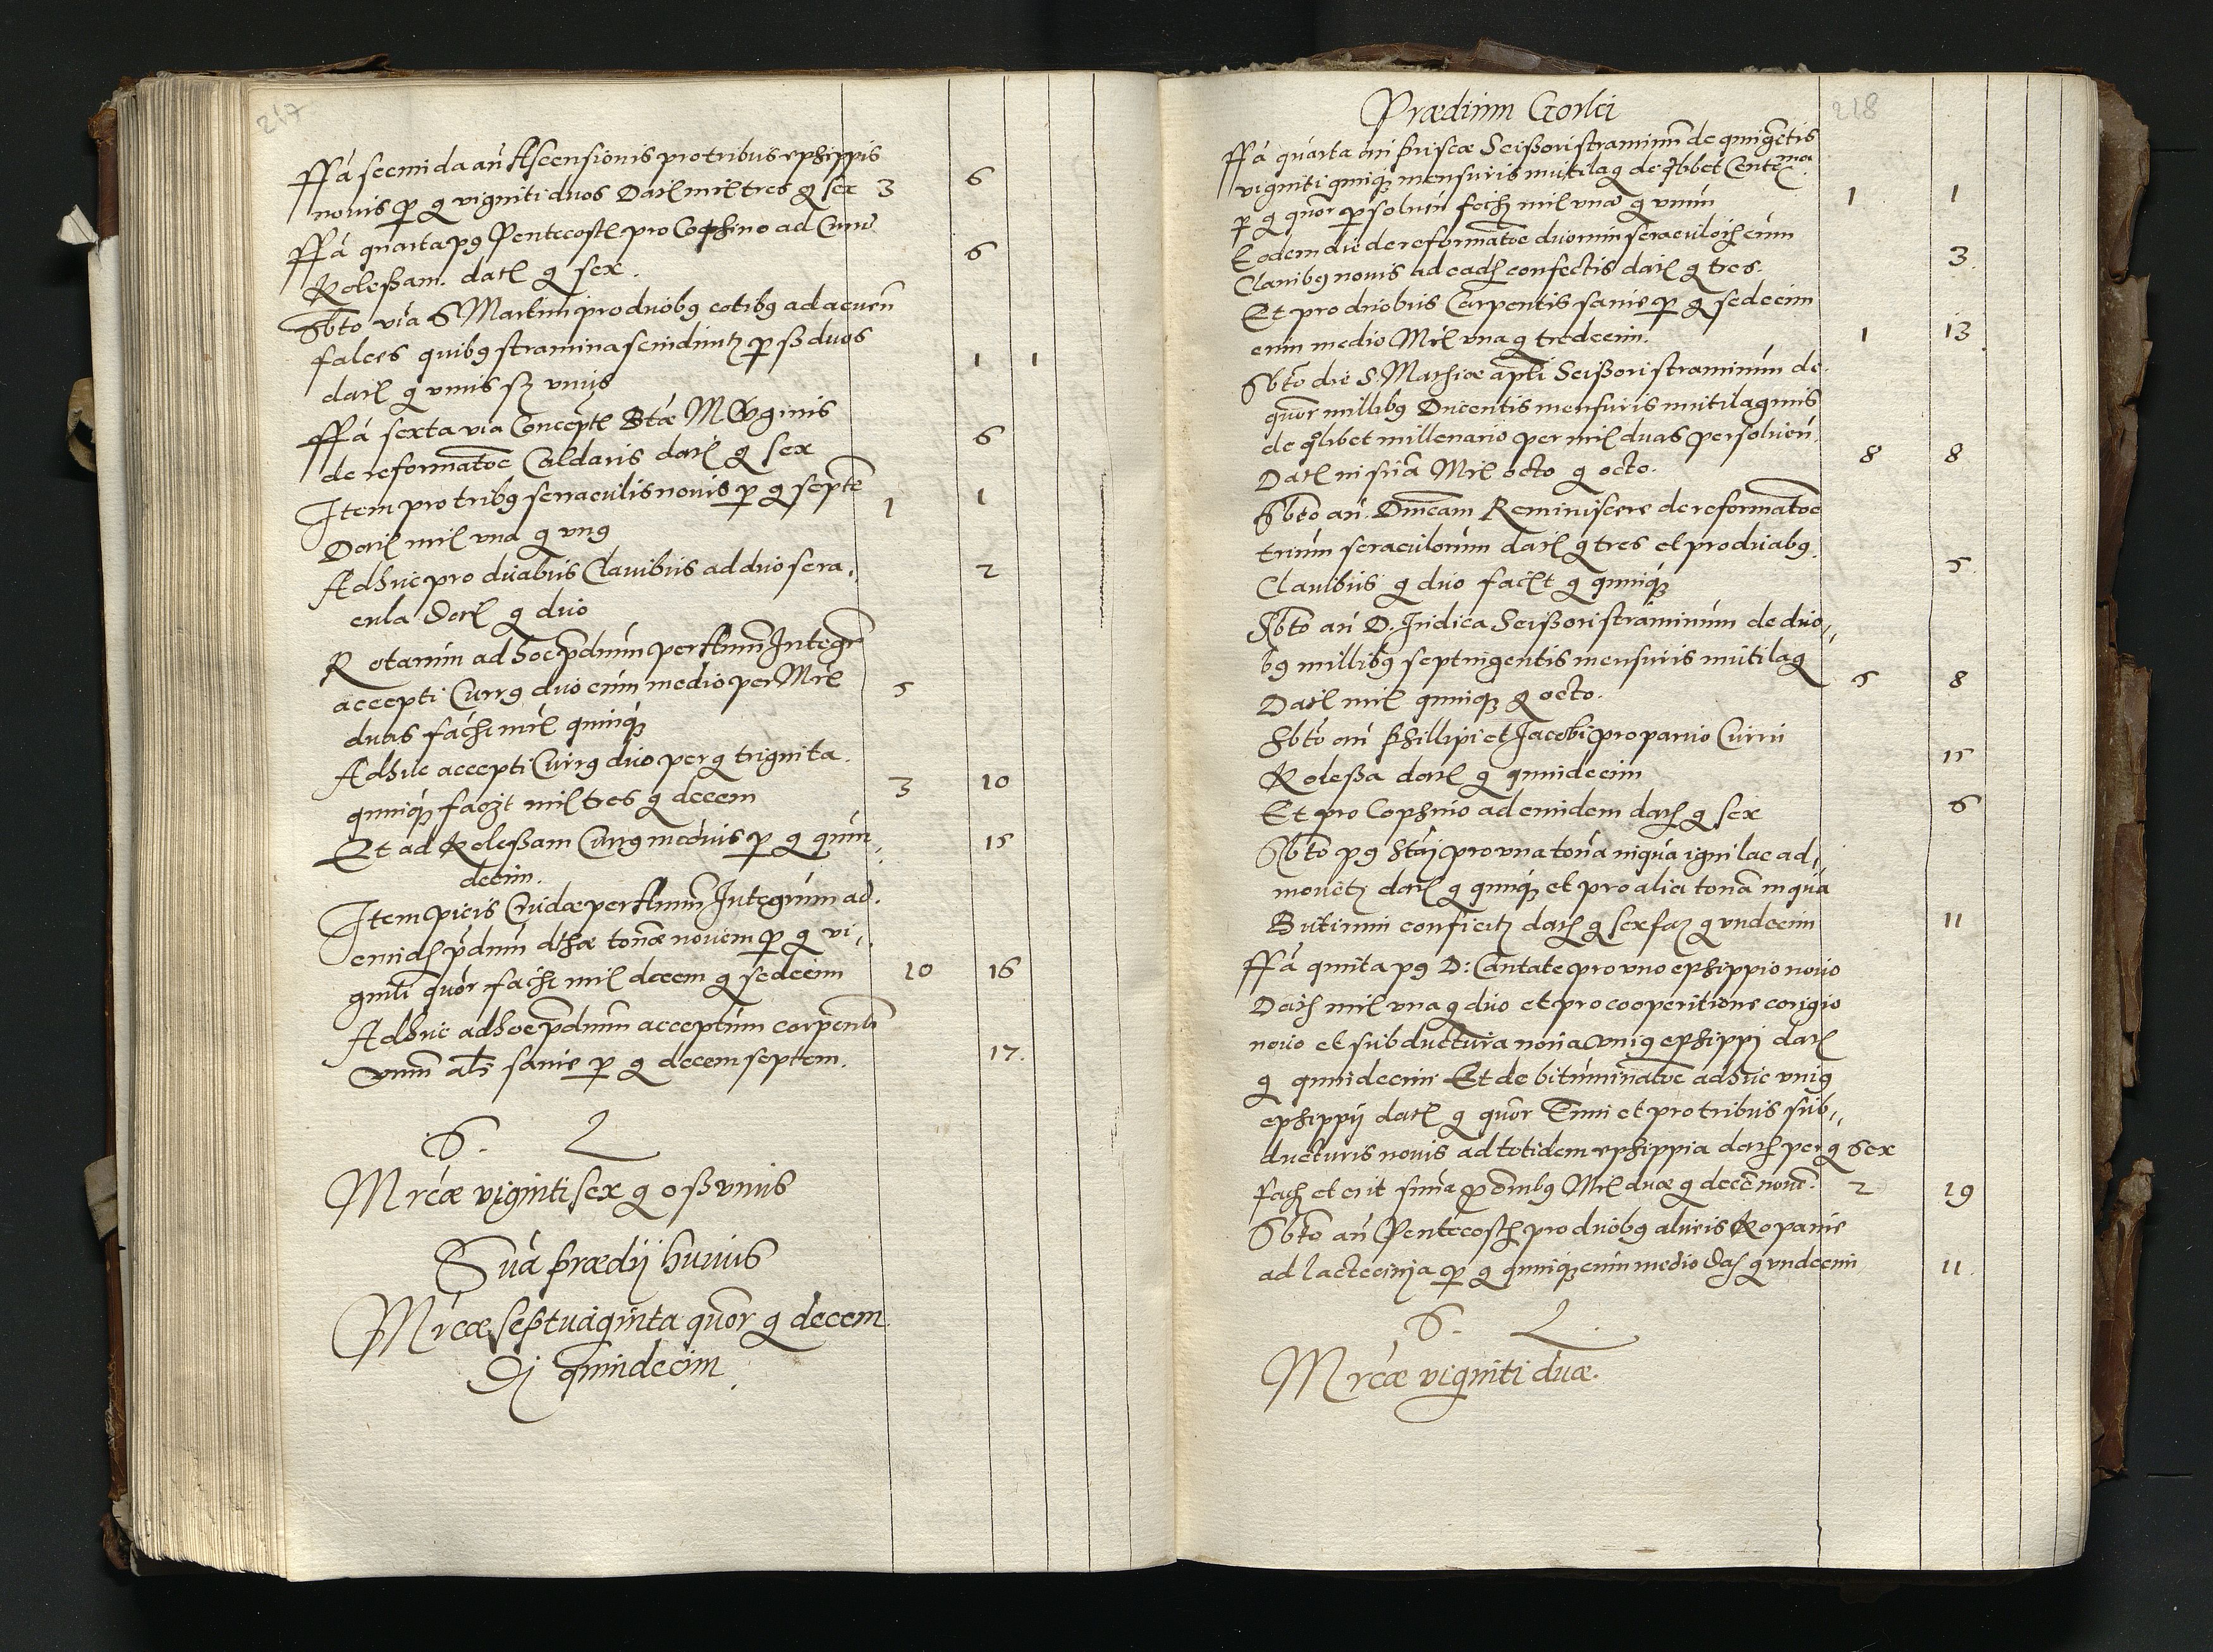 217
ffá secunda añ Ascensionis pro tribus ephippis 3 6
novis p g viginti duos Datl mil tres g sex
ffá quarta pq Pentecostl pro Cophino ad Curru 6
Kolessam. datl g sex.
Sbto via S Martini pro duobq cotibq ad acuen
falces quibq stramina scindunt p ss duos
datl g unus ss unus 1 1
ffá sexta via Conceptl Btae M Virginis
de reformatoe Caldaris datl g sex 6
Item pro tribq seraculis novis p g septē
Datl mil una g unq 1 1
Adhuc pro duabus Clavibus ad duo sera,, 2
cula datl g duo
Rotarum ad hoc pdium per Annū Integr
accepti Currq duo cum medio per Mrl 5
duas fácht mrl quinqz
Adhuc accepti Currq duo per g triginta
quinqz facht mil tres g decem 3 10
Et ad Kolessam Currq medius p g quin,, 15
decim.
Item picis Crudae per Annū Integrum ad
eundl pdium dthae tonae novem p g vi,,
ginti quor facht mil decem g sedecim 10 16
Adhuc ad hoc pdium acceptum carpentū
unum als sanie p g decem septem. 17.
S. L
Mrcae viginti sex g o ss unus
Suá praedij huius
Mrcae septuaginta quor g decem
Dj quindecim
218
Praedium Gorki
ffá quarta in Priscae Scissori straminum de quingētis
viginti quinqz mensuris mutilaq de qlibet Centena
p g quor psoluēn fecht mil una g unum 1 1
Eodem die de reformatoe duorum seraculorh cum
Clavibq novis ad eadh confectis datl g tres. 3
Et pro duobus Carpentis sanie p g sedecim
cum medio Mrl una g tredecim. 1 13
Sbto die S. Mathiae apli Scissori straminum de
quor millibq Ducentis mensuris mutilaginis
de qlibet millenario per mil duas persoluen
Datl in suā Mrl octo g octo. 8 8
Sbto añ. Dmcam Reminiscere de reformatoe
trium seraculorum datl g tres et pro duabq
Clavibus g duo facit g quinqz 5
Sbto añ D. Iudica Scissori straminum de duo,,
bq millibq septingentis mensuris mutilaq
Datl mil quinqz g octo. 5 8
Sbto añ Phillipi et Jacobi pro parvo Curru
Kolessa datl g quindecim 15
Et pro Cophino ad eundem dath g sex 6
Sbto pq Stāj pro una tona in qua igni lac ad,,
movetz datl g quinqz et pro alia tona in qua
Butirum conficitz dath g sex faz g undecim 11
ffá quinta pq D: Cantate pro uno ephippio novo
Dath mil una g duo et pro cooperitione corigio
novo et subductura nova uniq ephippj datl
g quindecim Et de bituminatoe adhuc uniq
ephippij datl g quor Tum et pro tribus sub,,
ducturis novis ad totidem ephippia dath per g sex
fach et erit suma p omnibq Mrl duae g decē novē. 2 19
Sbto añ Pentecosth pro duobq alveis Kopanie
ad lactecinia p g quinqz cum medio dah g undecim 11
S. L.
Mrcae viginti duae.